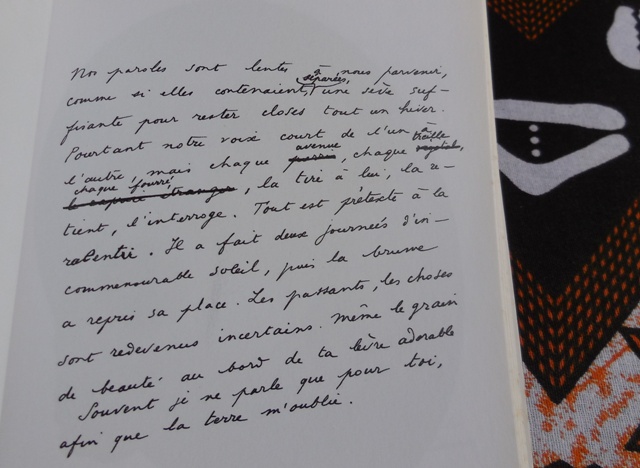 Nos paroles sont lentes à nous parvenir,
comme si elles contenaient, séparées, une sève suf-
fisante pour rester closes tout un hiver.
Pourtant notre voix court de l'un à
l'autre, mais chaque avenue, chaque treille,
chaque fourré, la tire à lui, la re-
tient, l'interroge. Tout est prétexte à la
ralentir. Il a fait deux journées d'in-
commensurable soleil, puis la brume
a repris sa place. Les passants, les choses
sont redevenus incertains. Même le grain
de beauté au bord de ta lèvre adorable
Souvent je ne parle que pour toi,
afin que la terre m'oublie.